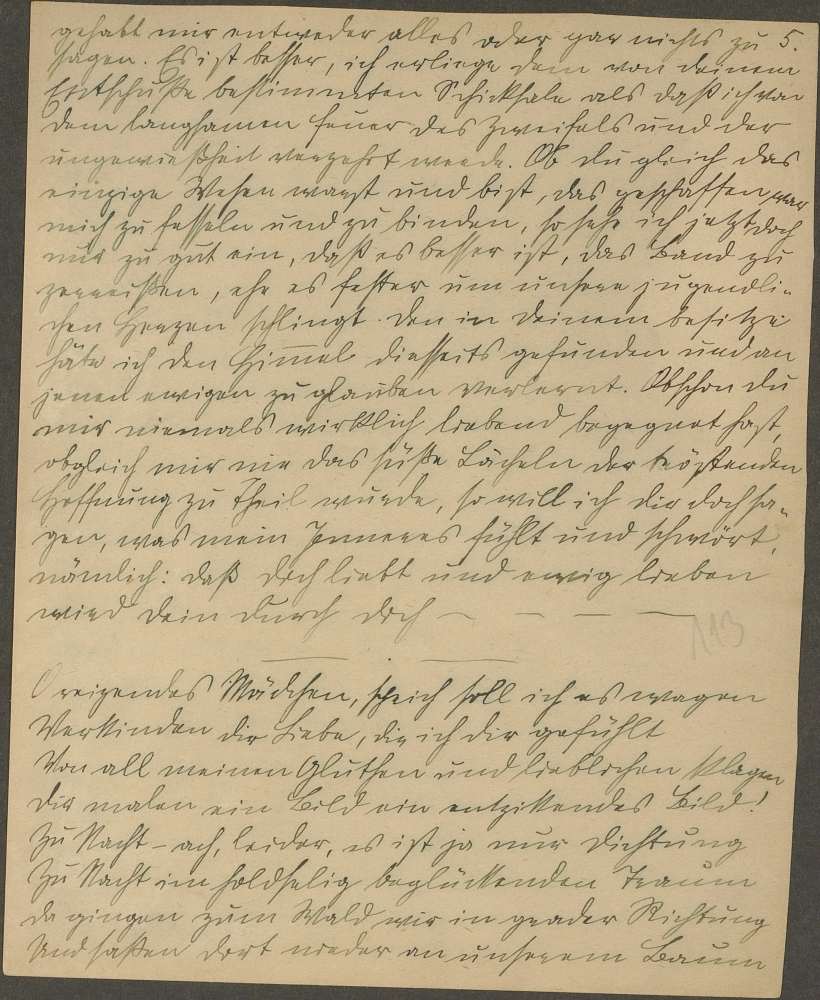 gehabt mir entweder alles oder gar nichts zu 5.
sagen. Es ist besser, ich erliege dem von deinem
Entschluße bestimmten Schicksale als daß ich von
dem langsamen Feuer des Zweifels und der
ungewießheit verzehrt werde. Ob du gleich das
einzige Wesen warst und bist, das geschaffen war
mich zu fesseln und zu binden, so sehe ich jetzt doch
nur zu gut ein, daß es besser ist, das Band zu
zerreißen, ehe es fester um unsere jugendli-
chen Herzen schlingt. Den in deinem besitze
häte ich den Himmel diesseits gefunden und an
jenen ewigen zu glauben verlernt. Obschon du
mir niemals wirklich liebend begegnet hast,
obgleich mir nie das süße Lächeln der tröstenden
Hoffnung zu Theil wurde, so will ich dir doch sa-
gen, was mein Inneres fühlt und schwört,
nämlich: daß dich liebt und ewig lieben
wird dein durch dich — — — —
113
O reizendes Mädchen, sprich soll ich es wagen
Verkinden dir Liebe, die ich dir gefühlt
Von all meinen Gluthen und lieblichen Klagen
dir malen ein Bild ein entzikendes Bild!
Zu Nacht – ach, leider, es ist ja nur Dichtung
Zu Nacht im holdselig beglückenden Traum
da gingen zum Wald wir in grader Richtung
Und saßen dort nieder an unserem Baum